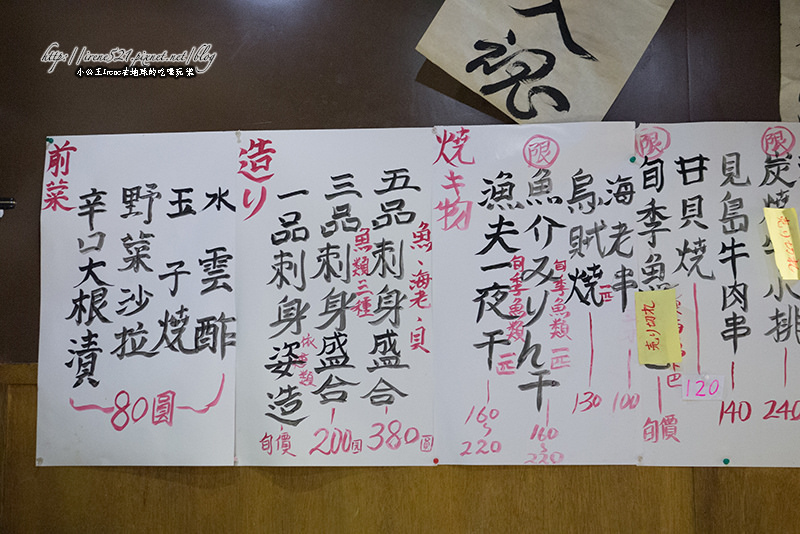 https://irene521.pixnet.net/blog
小公主Irene去地球的吃喝玩樂
入魂
前菜
水雲酢
玉子燒
野菜沙拉
辛口大根漬
80圓
造り
五品刺身盛合
魚、海老、貝
380圓
三品刺身盛合
魚類三種
200圓
一品刺身姿造
依魚類
旬價
燒き物
海老串
100
烏賊燒
一匹
130
限
魚介みりん干
旬季魚類一匹
160~220
漁夫一夜干
旬季魚類一匹
160~220
限
炭燒牛小排
240
見島牛肉串
140
甘貝燒
120
限
旬季魚
売り切れ
旬價